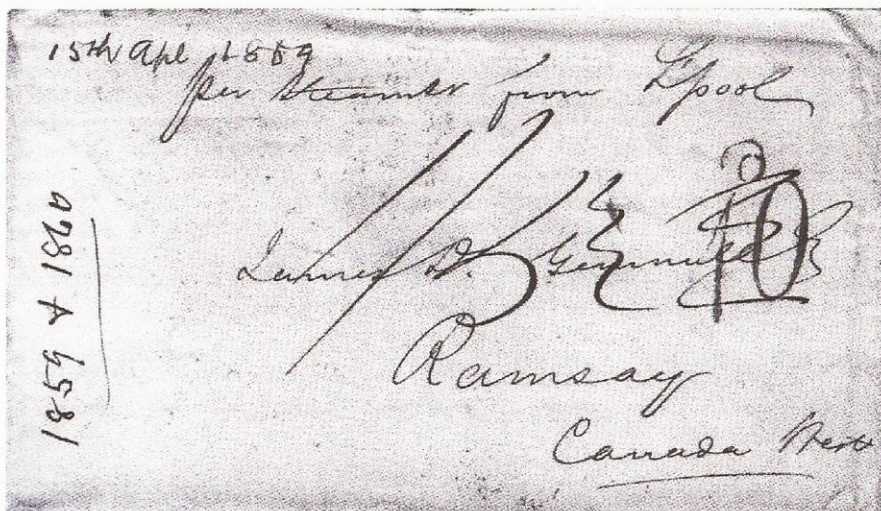 15th Apl 1859
per Steamer from L'pool
James D. Gemmill
Ramsay
Canada West
10
1859 & 1860